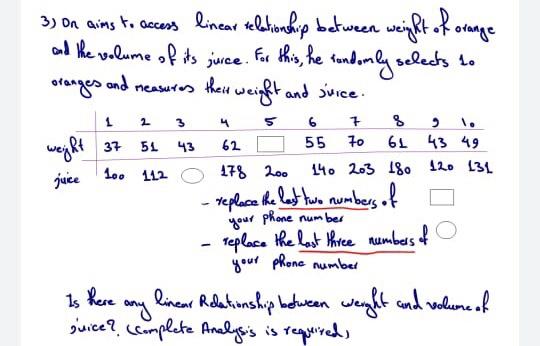 3) On aims to access linear relationship between weight of orange
and the volume of its juice. For this, he randomly selects 10
oranges and measures their weight and juice.
1 2 3 4 5 6 7 8 9 10
weight 37 51 43 62 55 70 61 43 49
juice 100 112 178 200 140 203 180 120 131
- replace the last two numbers of
your phone number
- replace the last three numbers of
your phone number
Is there any linear Relationship between weight and volume of
juice? (complete Analysis is required)